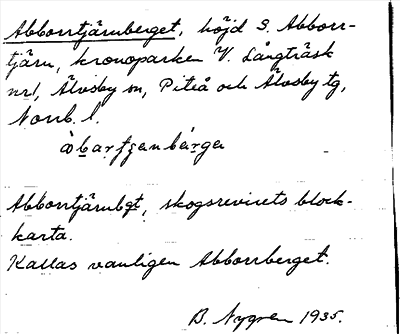 Abborrtjärnberget, höjd S. Abborr-
tjärn, kronoparken V. Långträsk
nr1, Älvsby sn, Piteå och Älvsby tg,
Norrb. l.
Abborrtjärnbgt, skogsrevirets block-
karta.
Kallas vanligen Abborrberget.
B. Nygren 1935.